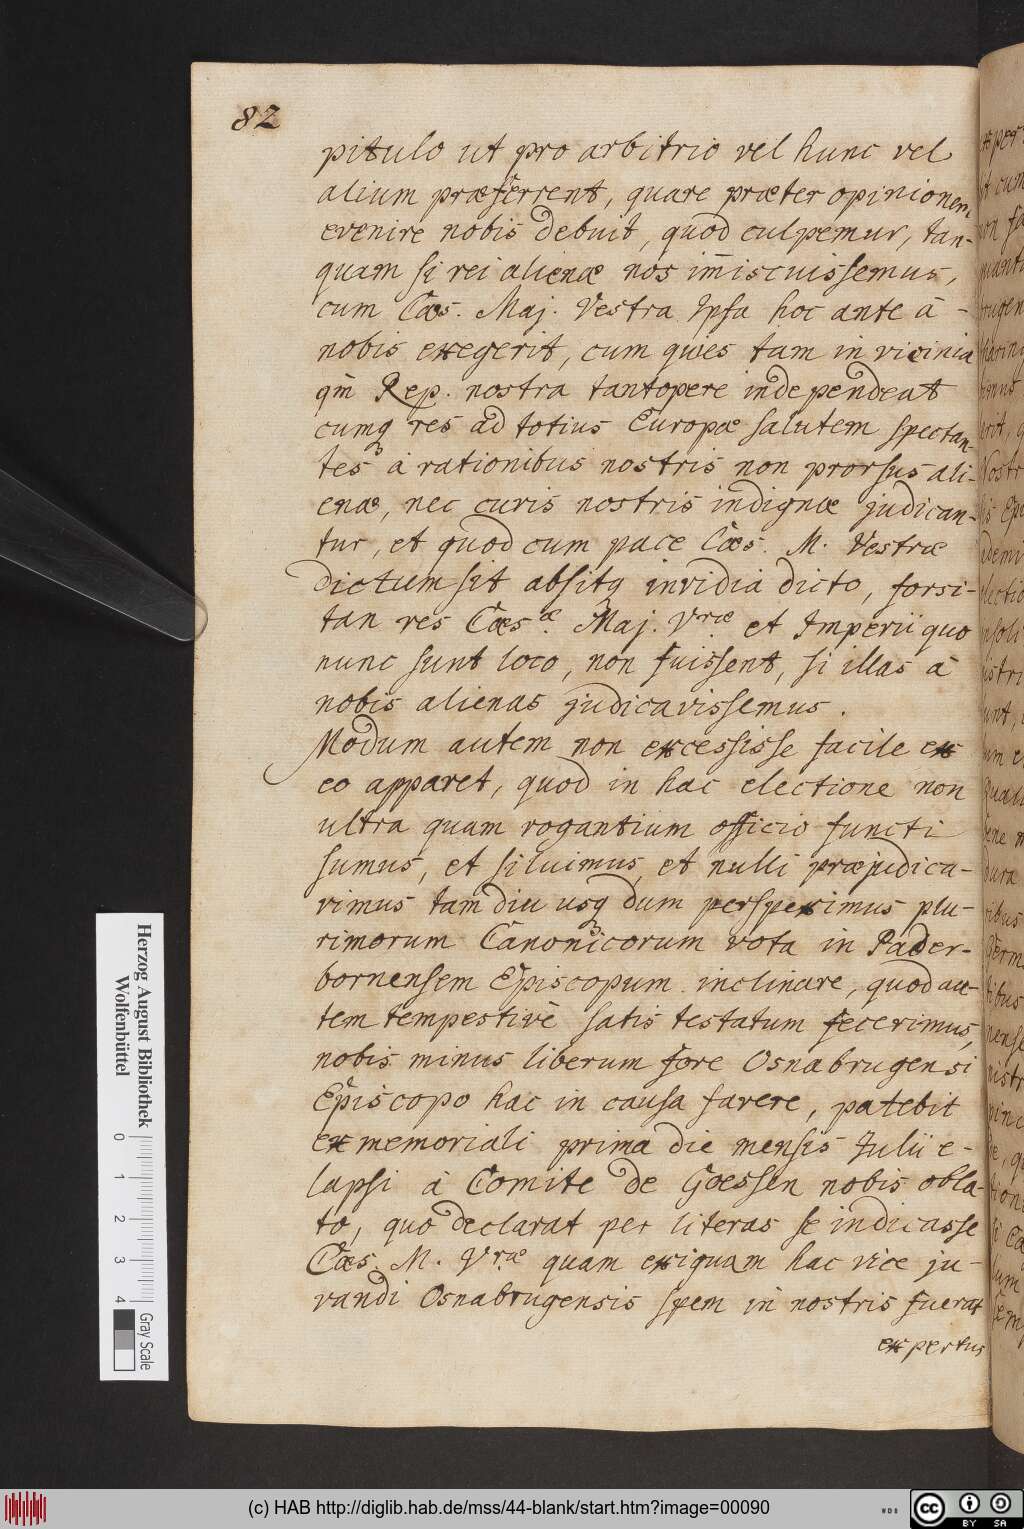 82
pitulo ut pro arbitrio vel hunc vel
alium præferrent, quare præter opinionem
evenire nobis debuit, quod culpemur, tan-
quam si rei alienæ nos im̃iscuissemus,
cum Cæs. Maj. Vestra Ipsa hoc ante à -
nobis exegerit, cum quies tam in vicinia
qm̃ Rep. nostra tantopere independeat
cumq res ad totius Europæ salutem spectan-
tes à rationibus nostris non prorsus ali-
enæ, nec curis nostris indignæ judican-
tur, et quod cum pace Cæs. M. Vestræ
dictum sit absitq invidia dicto, forsi-
tan res Cæs.æ Maj. Vræ et Imperii quo
nunc sunt loco, non fuissent, si illas à
nobis alienas judicavissemus.
Modum autem non excessisse facile ex
eo apparet, quod in hac electione non
ultra quam rogantium officio functi
sumus, et siluimus, et nulli præjudica-
vimus tam diu usq dum perspeximus plu-
rimorum Canonicorum vota in Pader-
bornensem Episcopum inclinare, quod au-
tem tempestivè satis testatum fecerimus,
nobis minus liberum fore Osnabrugensi
Episcopo hac in causa favere, patebit
ex memoriali prima die mensis Julii e-
lapsi à Comite de Goessen nobis obla-
to, quo declarat per literas se indicasse
Cæs. M. Vræ quam exiguam hac vice ju-
vandi Osnabrugensis spem in nostris fuerat
expertus
Herzog August Bibliothek
Wolfenbüttel
0 1 2 3 4 Gray Scale
(c) HAB http://diglib.hab.de/mss/44-blank/start.htm?image=00090
WDB
cc BY SA